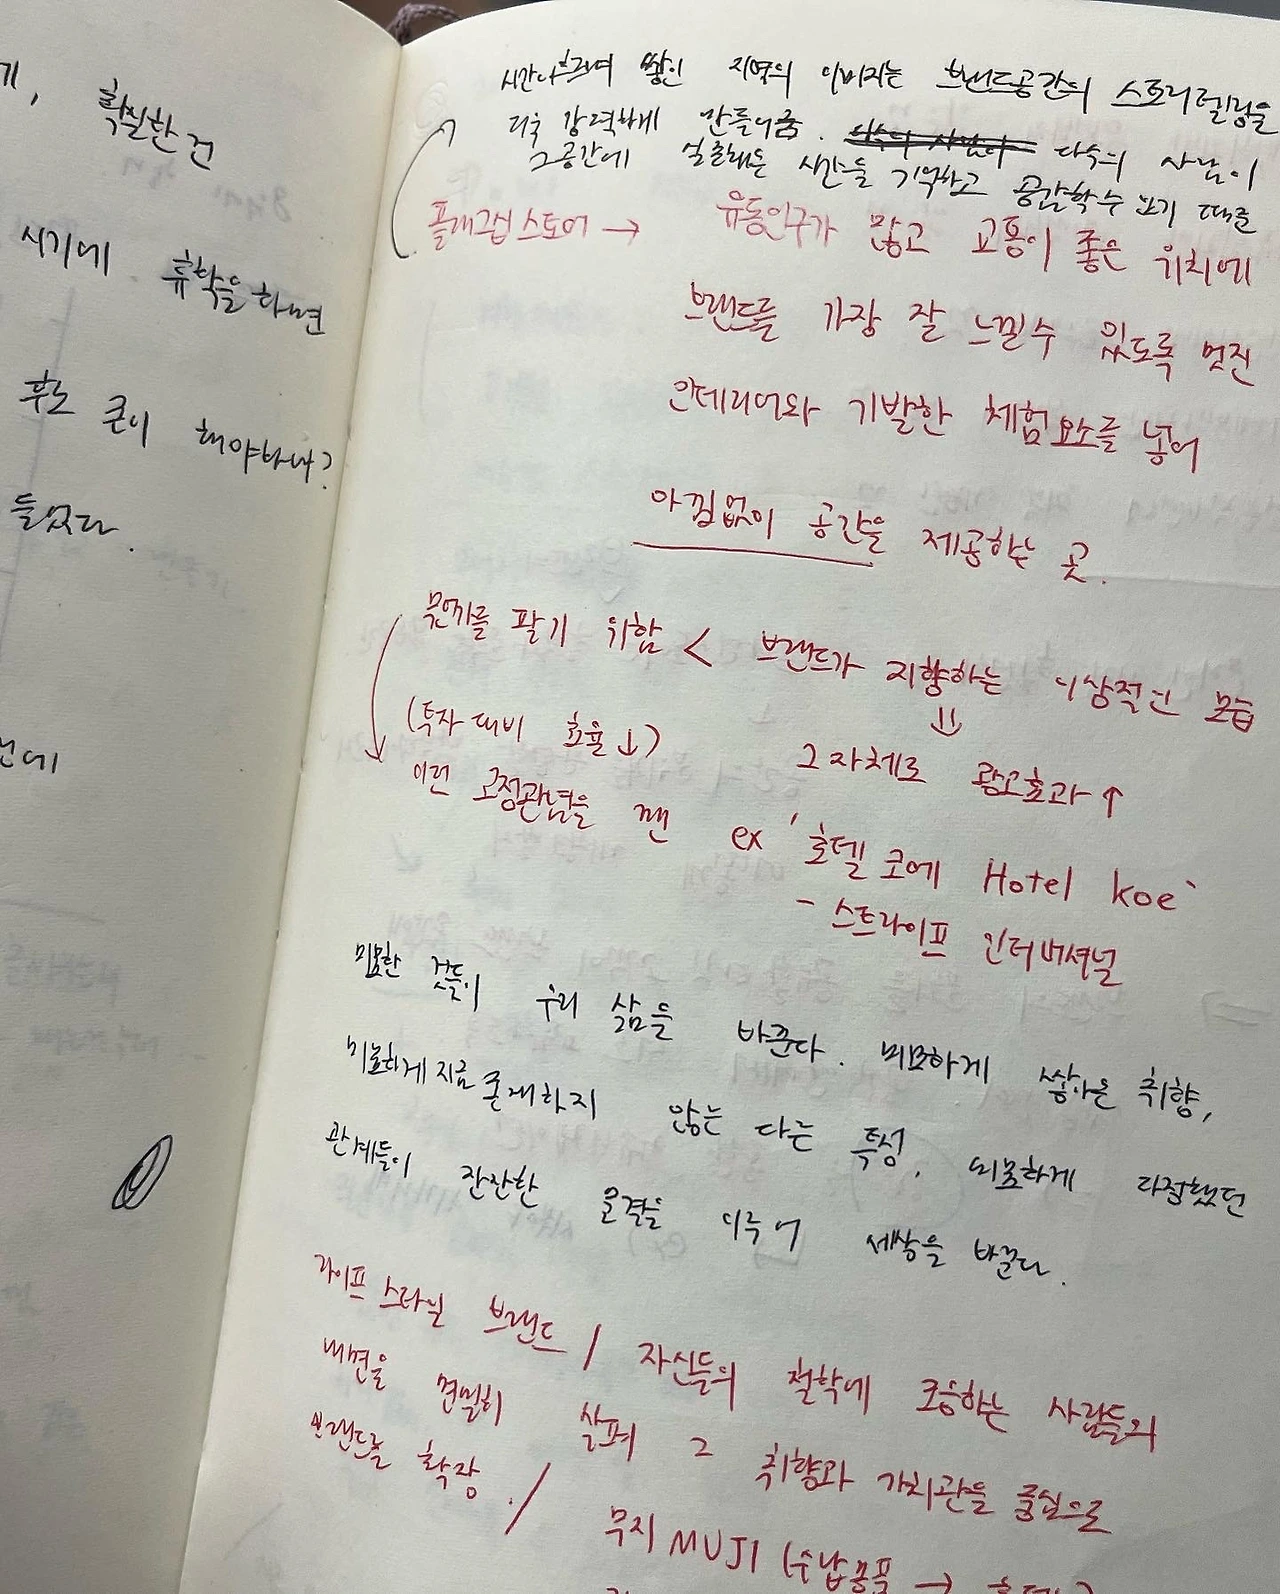 게, 확실한 건
시기에 휴학을 하면
휴도 큰이 해야하나?
들었다.
런데
시간이 흐르며 쌓인 지역의 이미지는 브랜드공간의 스토리텔링을
더욱 강력하게 만들어줌. 다수의 사람이
그공간에 실존했던 시간을 기억하고 공간학수 있기 때문
플래그쉽 스토어 → 유동인구가 많고 교통이 좋은 위치에
브랜드를 가장 잘 느낄수 있도록 멋진
인테리어와 기발한 체험요소를 넣어
아낌없이 공간을 제공하는 곳.
무언가를 팔기 위함 < 브랜드가 지향하는 이상적인 모습
(투자 대비 효율↓) ⇓ 그 자체로 광고효과↑
이런 고정관념을 깬 ex '호텔 코에 Hotel koe'
- 스트라이프 인터내셔널
미묘한 것들이 우리 삶을 바꾼다. 미묘하게 쌓아온 취향,
미묘하게 지금 존재하지 않는 다른 특성, 미묘하게 다정했던
관계들이 잔잔한 물결을 이루어 세상을 바꾼다.
라이프 스타일 브랜드 / 자신들의 철학에 호응하는 사람들의
내면을 면밀히 살펴 그 취향과 가치관을 중심으로
브랜드를 확장. / 무지 MUJI (수납용품 → 호텔)